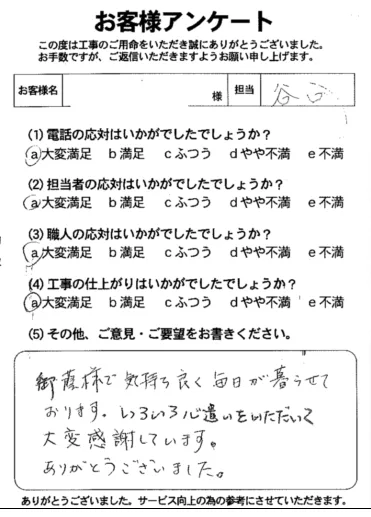 お客様アンケート
この度は工事のご用命をいただき誠にありがとうございました。
お手数ですが、ご返信いただきますようお願い申し上げます。
お客様名 様 担当 谷
(1) 電話の応対はいかがでしたでしょうか？
a大変満足 b満足 cふつう dやや不満 e不満
(2) 担当者の応対はいかがでしたでしょうか？
a大変満足 b満足 cふつう dやや不満 e不満
(3) 職人の応対はいかがでしたでしょうか？
a大変満足 b満足 cふつう dやや不満 e不満
(4) 工事の仕上がりはいかがでしたでしょうか？
a大変満足 b満足 cふつう dやや不満 e不満
(5) その他、ご意見・ご要望をお書きください。
御蔭様で気持ち良く毎日が暮らせて
おります。いろいろ心遣いをいただいて
大変感謝しています。
ありがとうございました。
ありがとうございました。サービス向上の為の参考にさせていただきます。